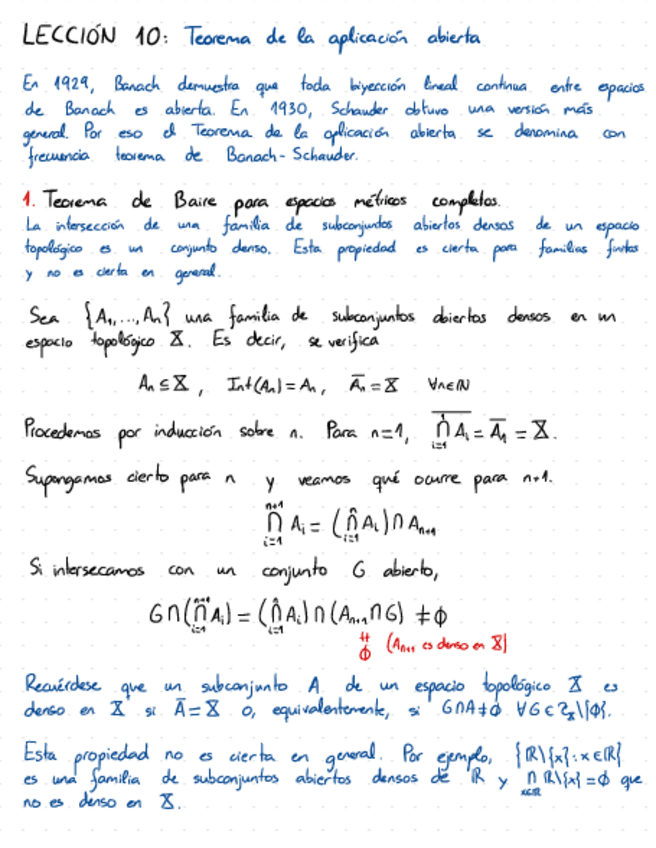 LECCIÓN 10: Teorema de la aplicación abierta
En 1929, Banach demuestra que toda biyección lineal continua entre espacios
de Banach es abierta. En 1930, Schauder obtuvo una versión más
general. Por eso el Teorema de la aplicación abierta se denomina con
frecuencia teorema de Banach-Schauder.
1. Teorema de Baire para espacios métricos completos.
La intersección de una familia de subconjuntos abiertos densos de un espacio
topológico es un conjunto denso. Esta propiedad es cierta para familias finitas
y no es cierta en general.
Sea {A₁,...,Aₙ} una familia de subconjuntos abiertos densos en un
espacio topológico X. Es decir, se verifica
Aₙ ⊆ X, Int(Aₙ) = Aₙ, A̅ₙ = X ∀n∈ℕ
Procedemos por inducción sobre n. Para n=1, \overline{⋂_{i=1}^{1} Aᵢ} = A̅₁ = X.
Supongamos cierto para n y veamos qué ocurre para n+1.
⋂_{i=1}^{n+1} Aᵢ = (⋂_{i=1}^{n} Aᵢ) ∩ Aₙ₊₁
Si intersecamos con un conjunto G abierto,
G ∩ (⋂_{i=1}^{n+1} Aᵢ) = (⋂_{i=1}^{n} Aᵢ) ∩ (Aₙ₊₁ ∩ G) ≠ ϕ
≠ ϕ (Aₙ₊₁ es denso en X)
Recuérdese que un subconjunto A de un espacio topológico X es
denso en X si A̅ = X o, equivalentemente, si G∩A ≠ ϕ ∀G ∈ τ_X\{ϕ}.
Esta propiedad no es cierta en general. Por ejemplo, {ℝ\{x} : x∈ℝ}
es una familia de subconjuntos abiertos densos de ℝ y ⋂_{x∈ℝ} ℝ\{x} = ϕ que
no es denso en X.